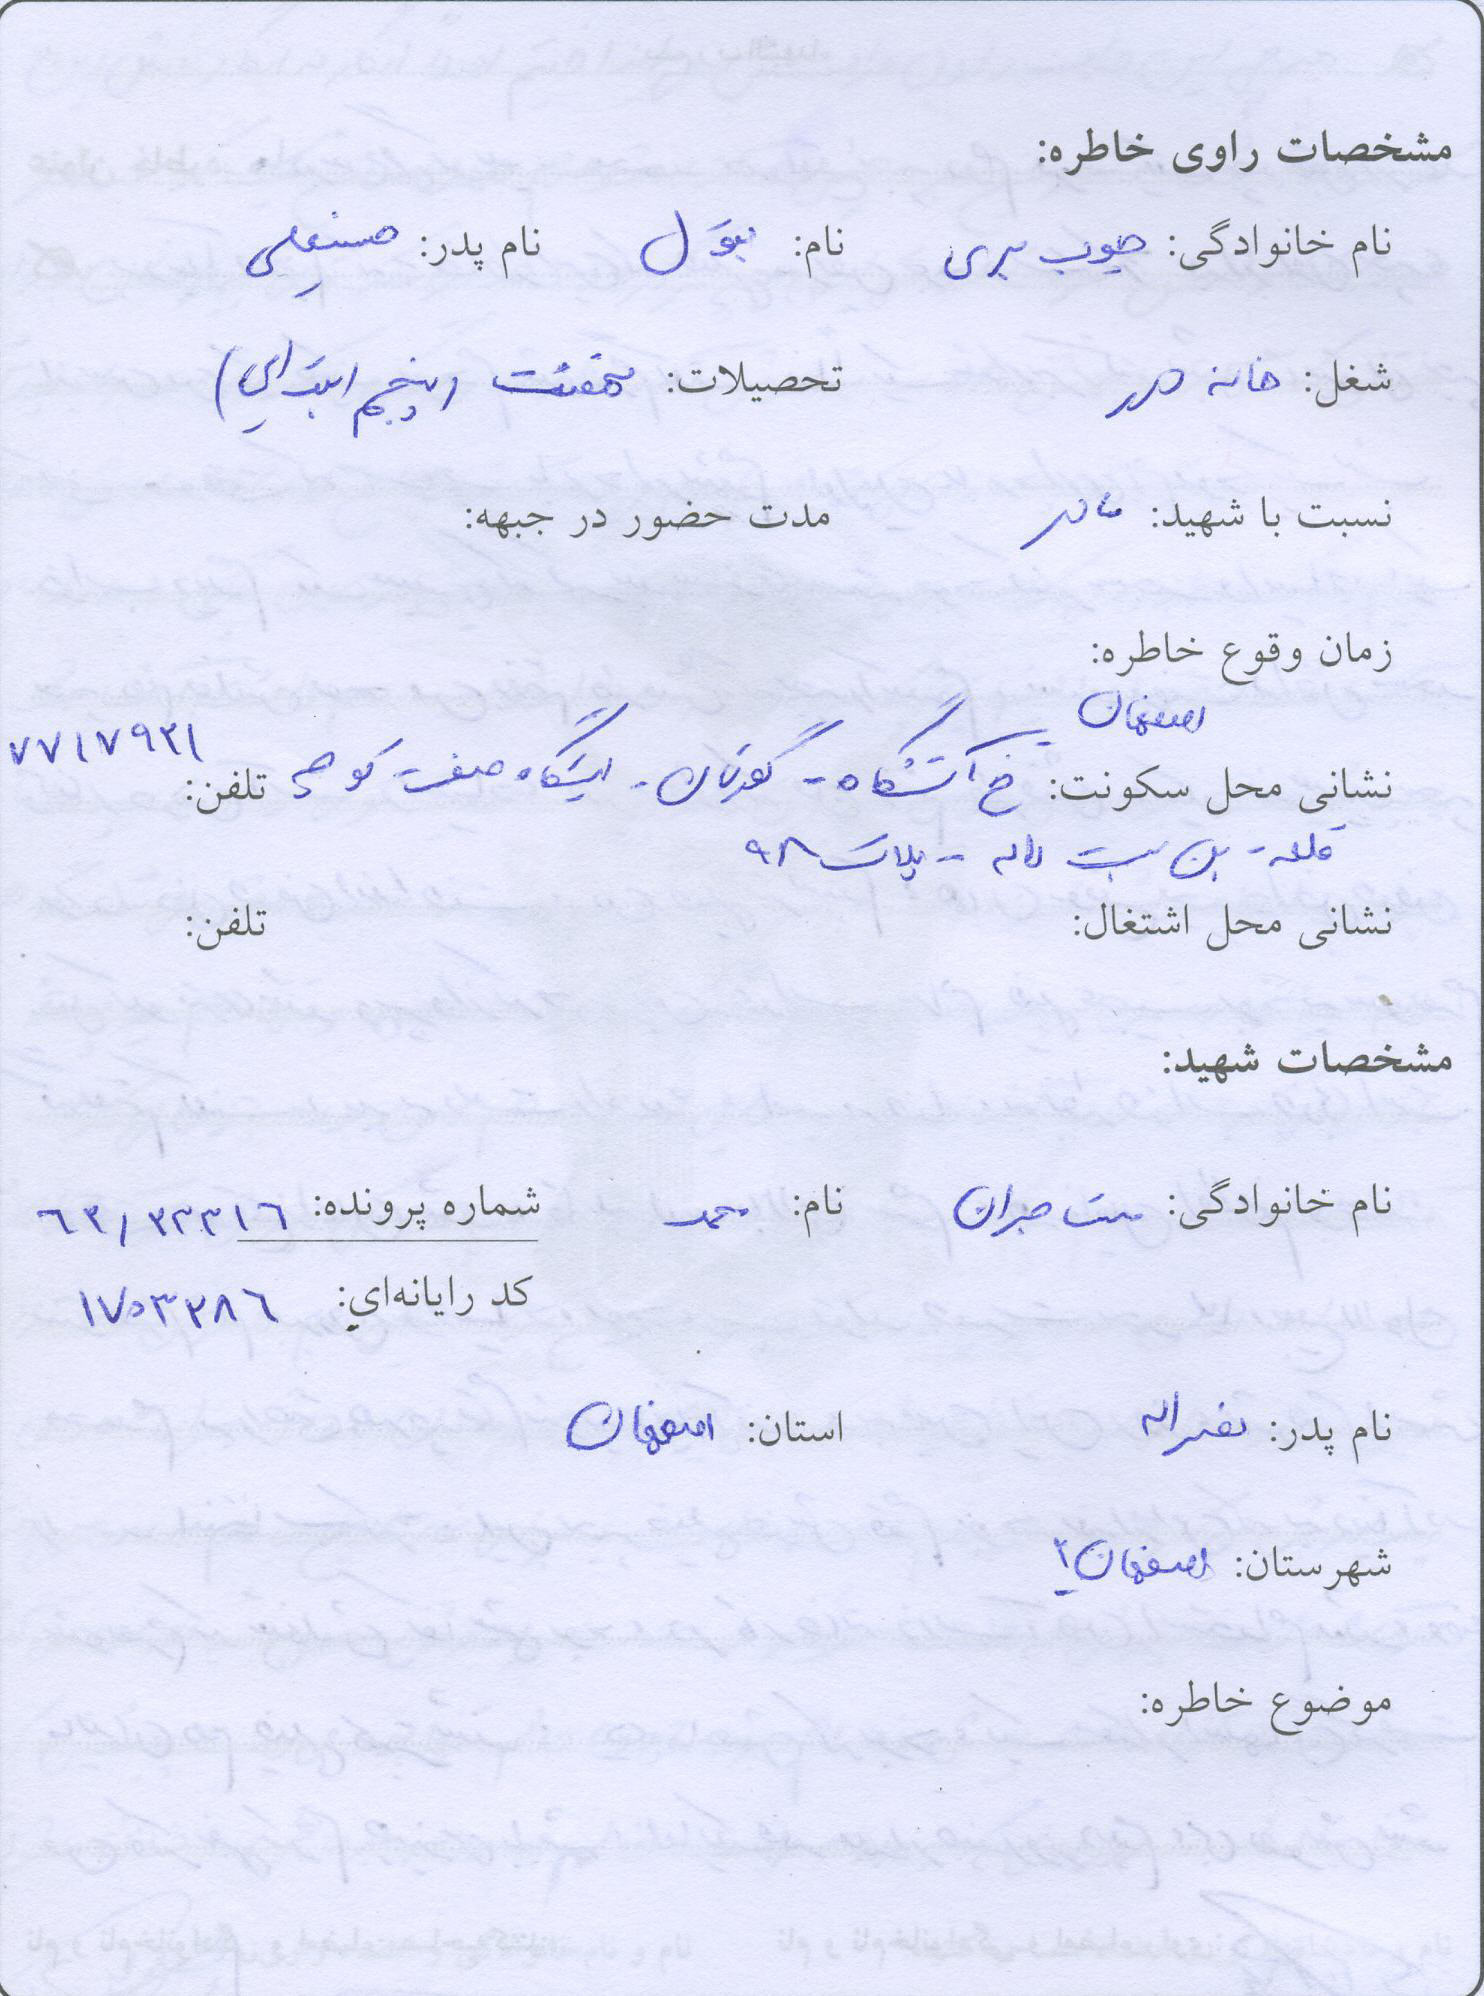 مشخصات راوی خاطره:
نام خانوادگی: نام: بتول نام پدر: حسنعلی
شغل: خانه دار تحصیلات: نهضت (پنجم ابتدایی)
نسبت با شهید: مادر مدت حضور در جبهه:
زمان وقوع خاطره:
اصفهان
نشانی محل سکونت: خ آتشگاه - گورتان - ایستگاه صنعت کوچه تلفن: ۷۷۱۷۹۳۱
قلعه - بن بست لاله - پلاک ۹۸
نشانی محل اشتغال: تلفن:
مشخصات شهید:
نام خانوادگی: نام: محمد شماره پرونده: ۶۳/۳۳۳۱۶
کد رایانه‌اي: ۱۷۰۳۲۸۶
نام پدر: نصراله استان: اصفهان
شهرستان: اصفهان ۲
موضوع خاطره: